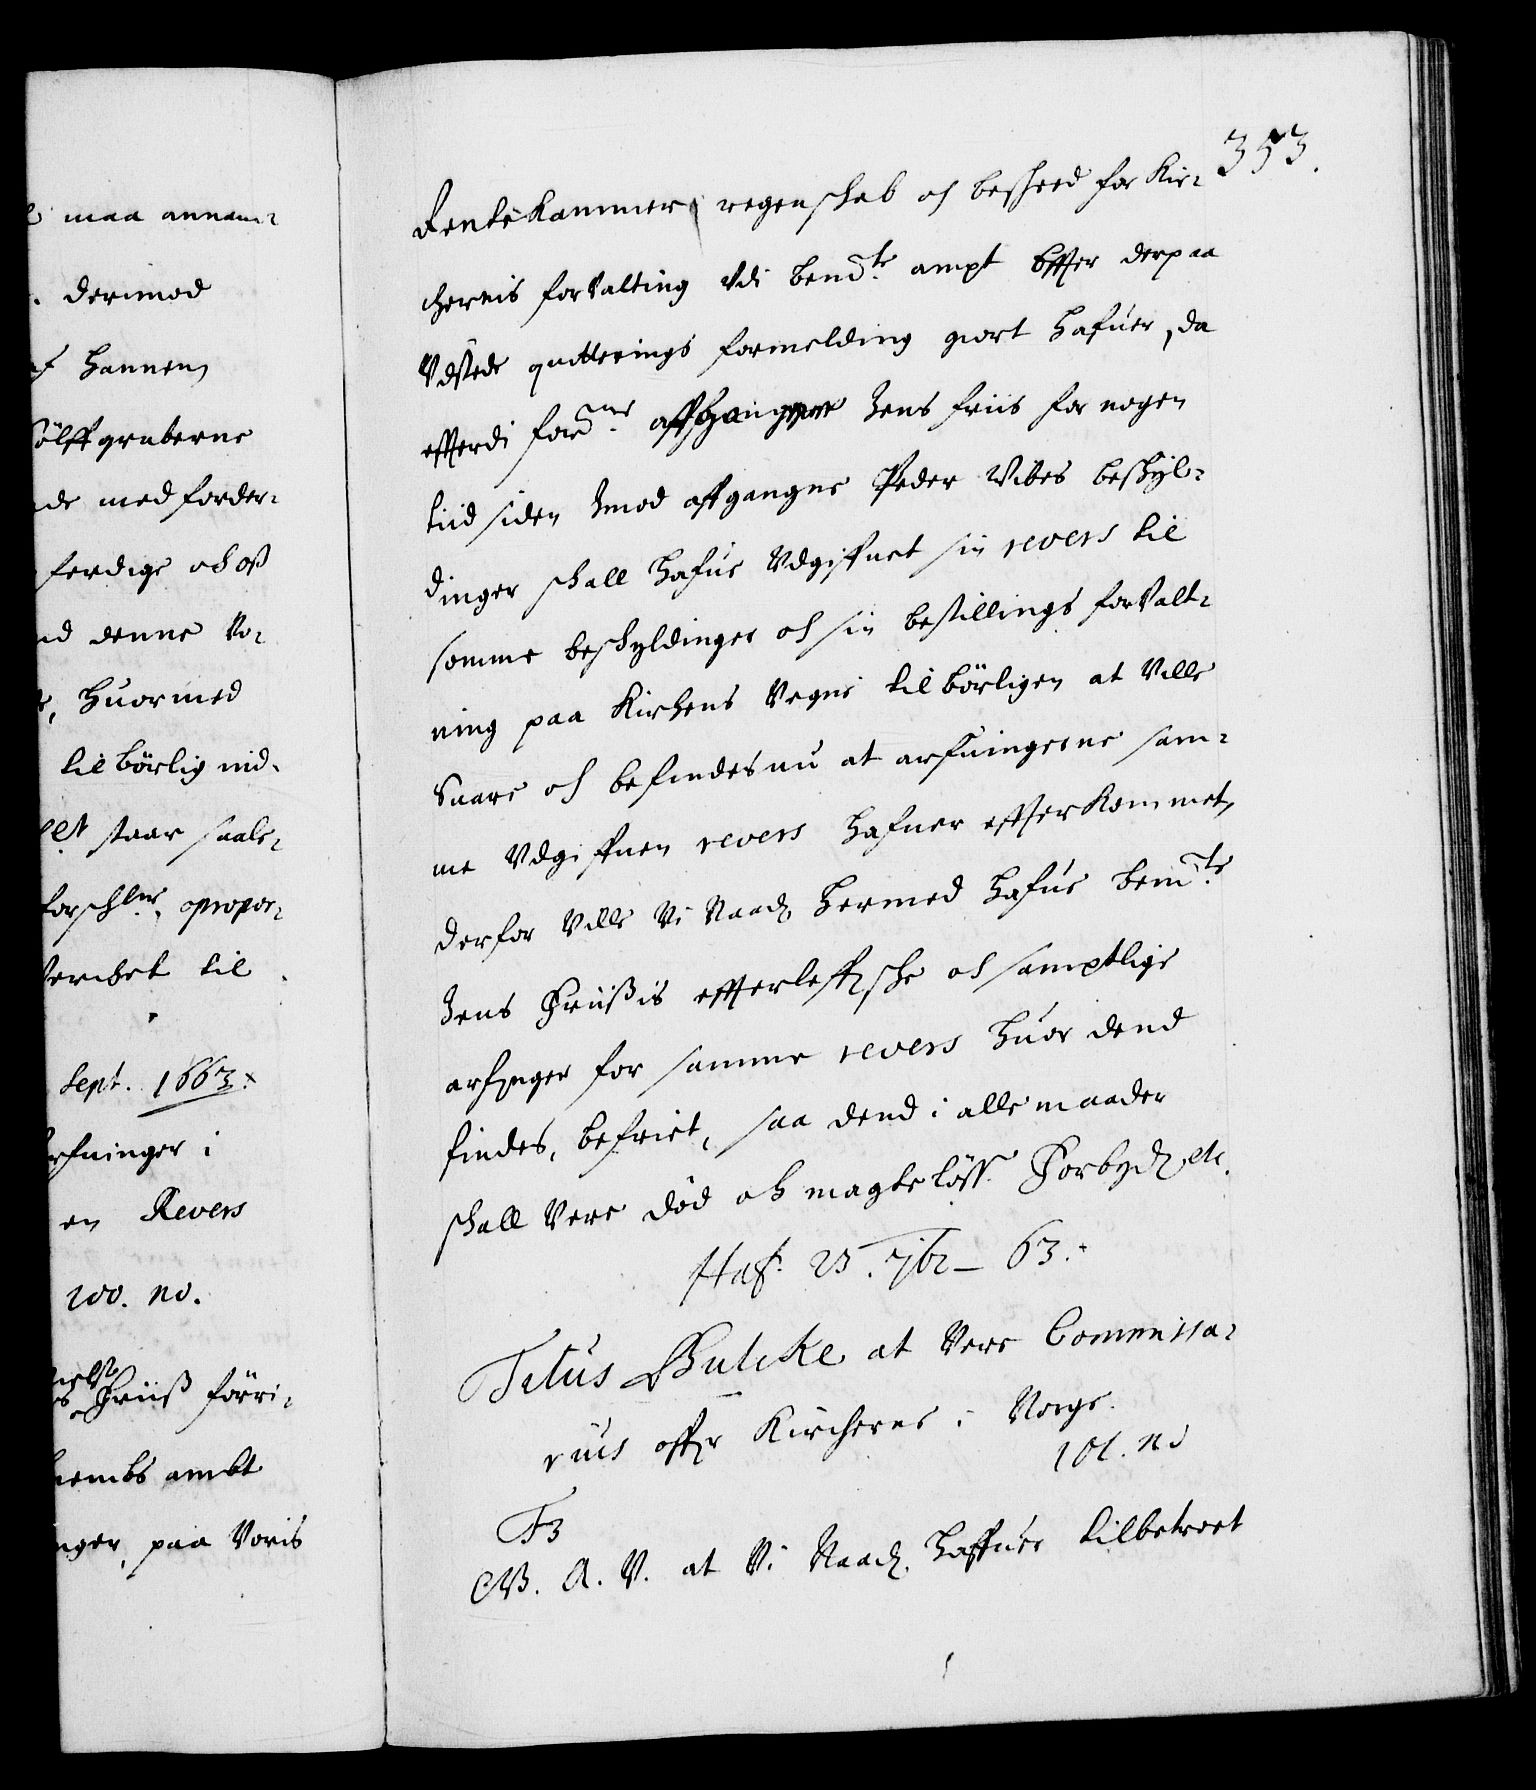 maa annam-
derimod
hannem
Sölffgruberne
med forder-
ferdige och oß
denne Vo-
huormed
tilbörlig ind-
staar saale-
til
Sept. 1663.
arfuinger i
en Revers
100. no.
Friiß förri-
ambt
paa Voris
353.
Rente Kammer regenskab och beskeed for Kir-
chernis forValting Vdi bemte ampt effter derpaa
Vdstede quitterings formelding giort hafuer, da
effterdi forne affgangne Jens friis for nogen
tiid siden Imod affgangne Peder Vibes beskyl-
dinger skall hafue Vdgiffuet sin revers til
somme beskyldinger och sin bestillings forValt-
ning paa Kirkens Vegne tilbörligen at Ville
Suare och befindes nu at arfuingerne sam-
me Vdgiffuen revers hafuer effterkommet,
derfor Ville Vi Naad. hermed hafue bemte
Jens Friißis effterleffske och samptlige
arfinger for samme revers huor dend
findes, befriet, saa dend i alle maader
skall Vere död och magtelöß. Forbyd. etc.
Haf. 23. 7br. 63.
Titus Bulcke at Vere Commissa-
rius offr Kircherne i Norge.
101. no
F3
G. A. V. at Vi Naad. haffuer tilbetroet